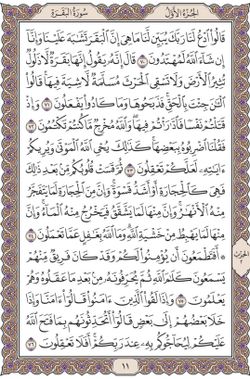 الجزء الأول
سورة البقرة
قَالُوا۟ ٱدْعُ لَنَا رَبَّكَ يُبَيِّن لَّنَا مَا هِىَ إِنَّ ٱلْبَقَرَ تَشَٰبَهَ عَلَيْنَا وَإِنَّآ
إِن شَآءَ ٱللَّهُ لَمُهْتَدُونَ ٧٠ قَالَ إِنَّهُۥ يَقُولُ إِنَّهَا بَقَرَةٌ لَّا ذَلُولٌ
تُثِيرُ ٱلْأَرْضَ وَلَا تَسْقِى ٱلْحَرْثَ مُسَلَّمَةٌ لَّا شِيَةَ فِيهَا قَالُوا۟
ٱلْـَٰٔنَ جِئْتَ بِٱلْحَقِّ فَذَبَحُوهَا وَمَا كَادُوا۟ يَفْعَلُونَ ٧١ وَإِذْ
قَتَلْتُمْ نَفْسًا فَٱدَّٰرَْٰٔتُمْ فِيهَا وَٱللَّهُ مُخْرِجٌ مَّا كُنتُمْ تَكْتُمُونَ ٧٢
فَقُلْنَا ٱضْرِبُوهُ بِبَعْضِهَا كَذَٰلِكَ يُحْىِ ٱللَّهُ ٱلْمَوْتَىٰ وَيُرِيكُمْ
ءَايَٰتِهِۦ لَعَلَّكُمْ تَعْقِلُونَ ٧٣ ثُمَّ قَسَتْ قُلُوبُكُم مِّنۢ بَعْدِ ذَٰلِكَ
فَهِىَ كَٱلْحِجَارَةِ أَوْ أَشَدُّ قَسْوَةً وَإِنَّ مِنَ ٱلْحِجَارَةِ لَمَا يَتَفَجَّرُ
مِنْهُ ٱلْأَنْهَٰرُ وَإِنَّ مِنْهَا لَمَا يَشَّقَّقُ فَيَخْرُجُ مِنْهُ ٱلْمَآءُ وَإِنَّ
مِنْهَا لَمَا يَهْبِطُ مِنْ خَشْيَةِ ٱللَّهِ وَمَا ٱللَّهُ بِغَٰفِلٍ عَمَّا تَعْمَلُونَ ٧٤
۞ أَفَتَطْمَعُونَ أَن يُؤْمِنُوا۟ لَكُمْ وَقَدْ كَانَ فَرِيقٌ مِّنْهُمْ
يَسْمَعُونَ كَلَٰمَ ٱللَّهِ ثُمَّ يُحَرِّفُونَهُۥ مِنۢ بَعْدِ مَا عَقَلُوهُ وَهُمْ
يَعْلَمُونَ ٧٥ وَإِذَا لَقُوا۟ ٱلَّذِينَ ءَامَنُوا۟ قَالُوٓا۟ ءَامَنَّا وَإِذَا
خَلَا بَعْضُهُمْ إِلَىٰ بَعْضٍ قَالُوٓا۟ أَتُحَدِّثُونَهُم بِمَا فَتَحَ ٱللَّهُ
عَلَيْكُمْ لِيُحَآجُّوكُم بِهِۦ عِندَ رَبِّكُمْ أَفَلَا تَعْقِلُونَ ٧٦
الحزب
١١